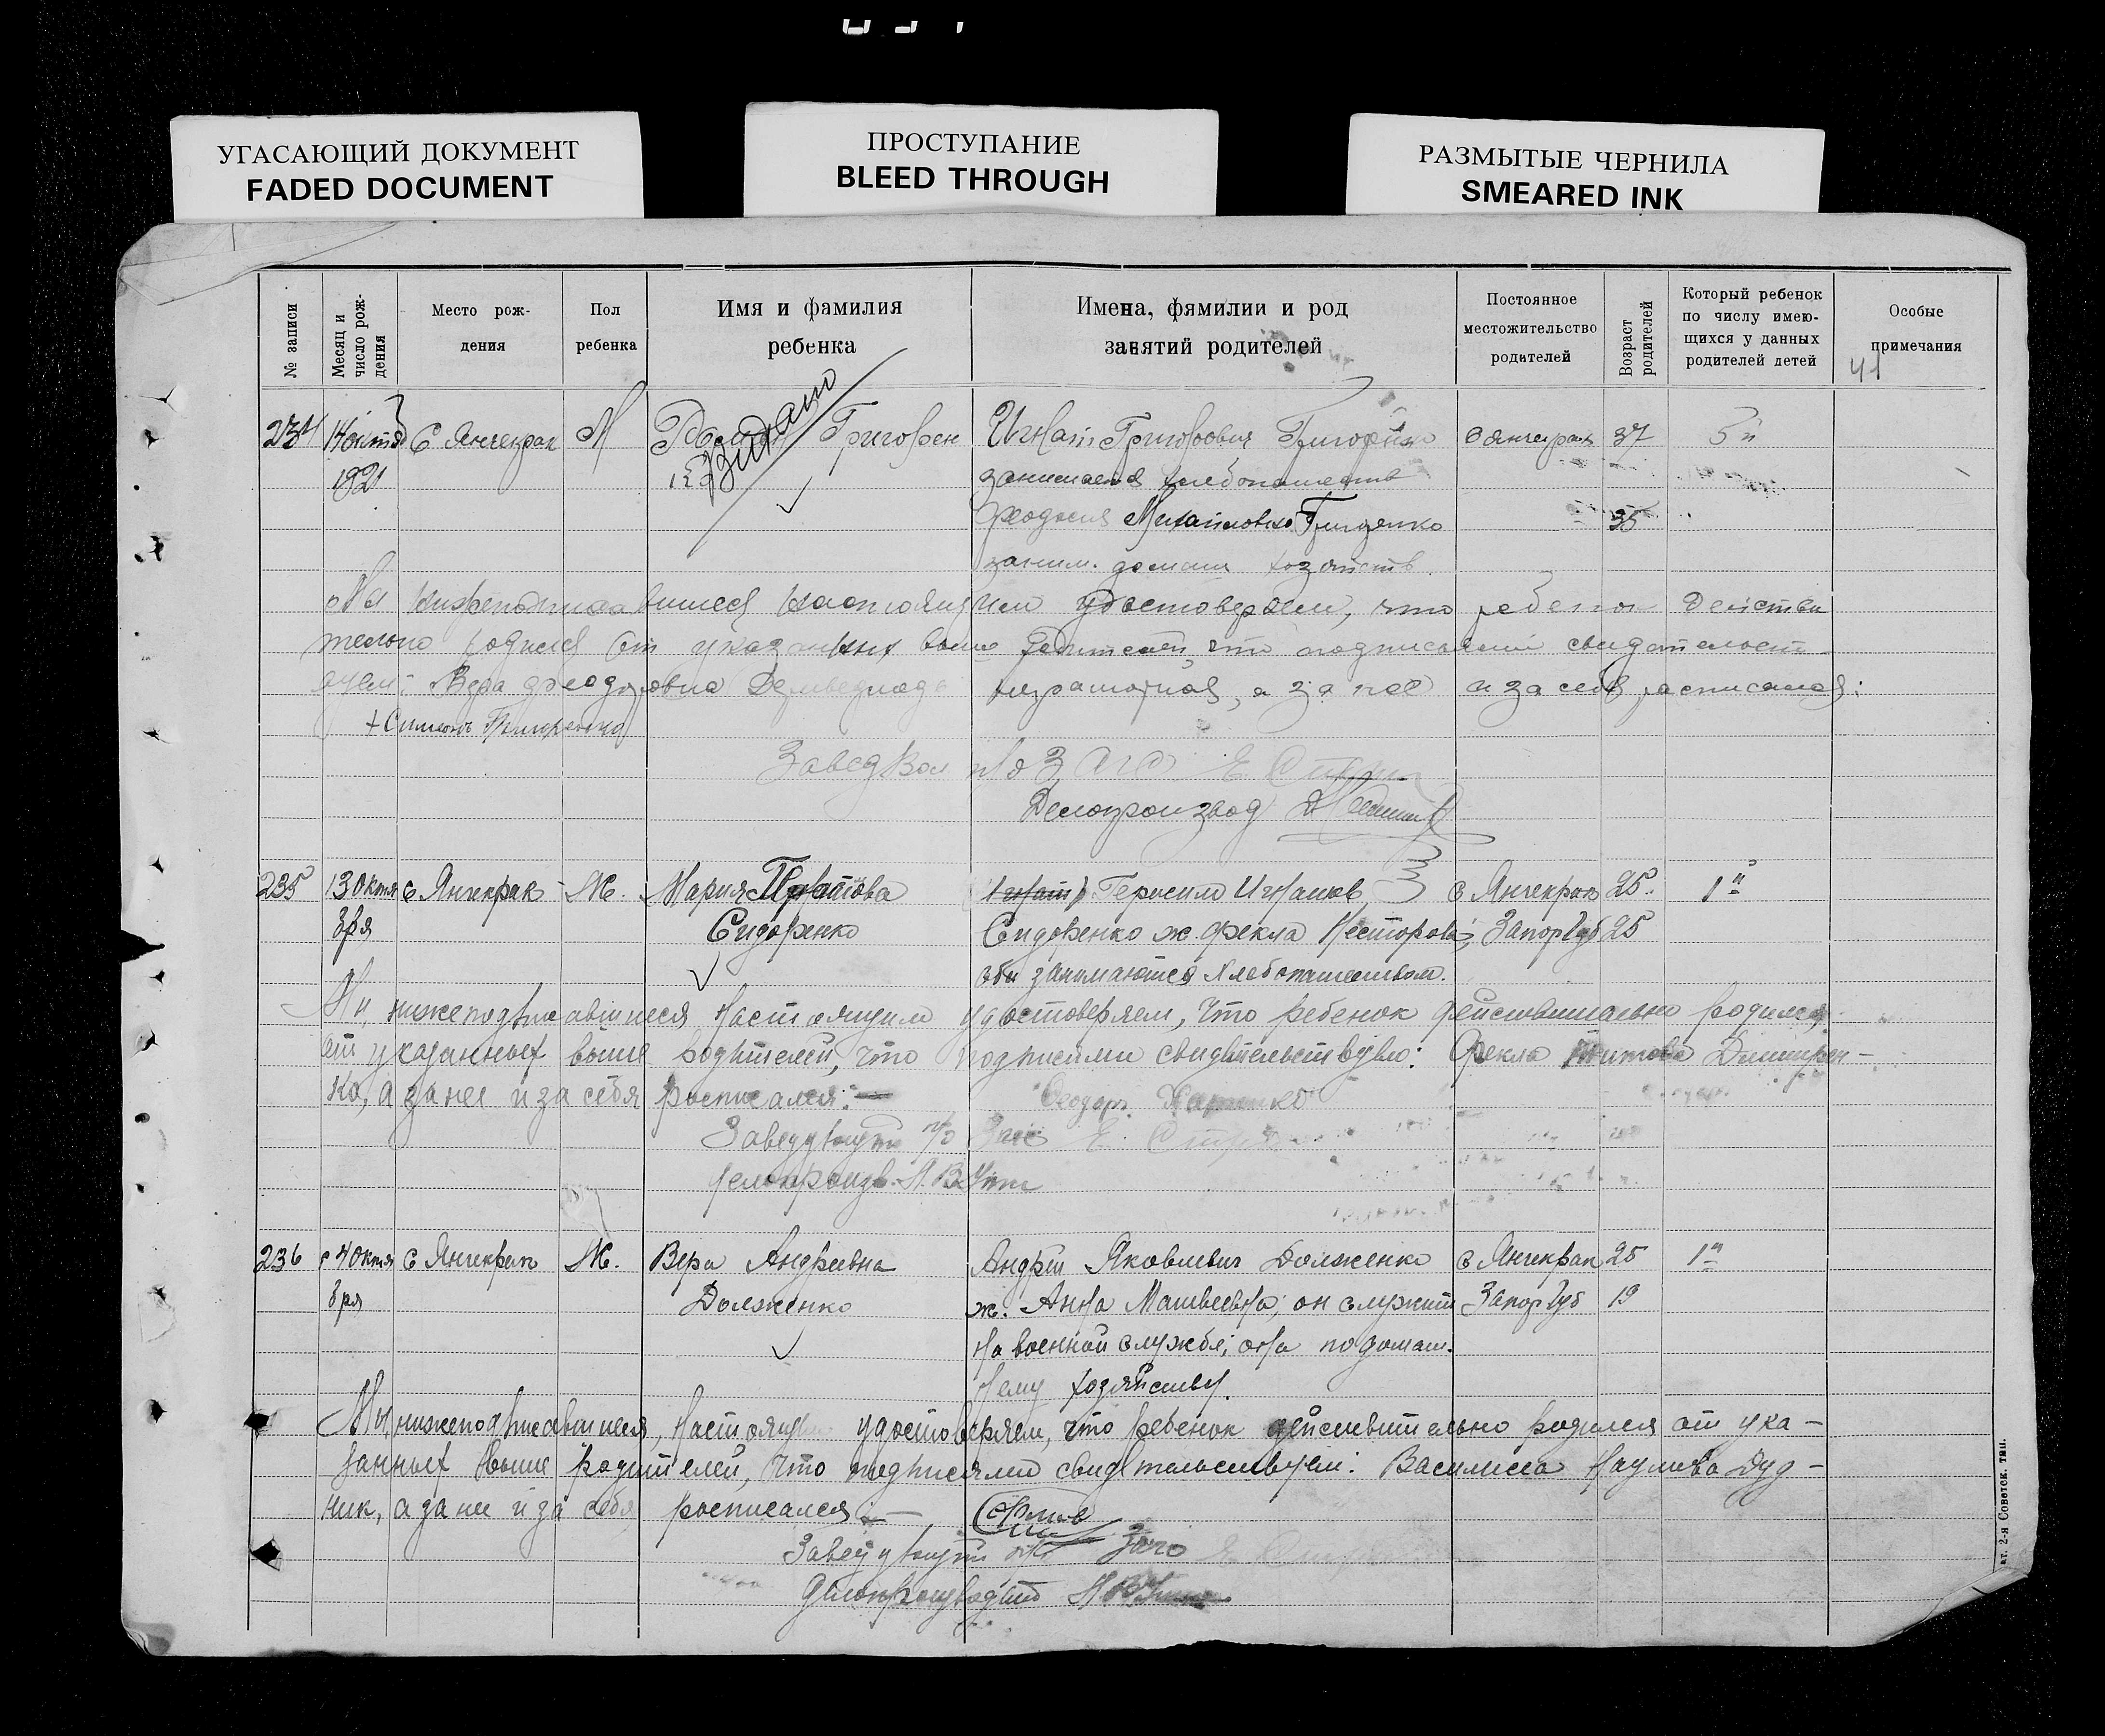 УГАСАЮЩИЙ ДОКУМЕНТ
FADED DOCUMENT
ПРОСТУПАНИЕ
BLEED THROUGH
РАЗМЫТЫЕ ЧЕРНИЛА
SMEARED INK
№ записи
Месяц и число рож-дения
Место рож-
дения
Пол
ребенка
Имя и фамилия
ребенка
Имена, фямилии и род
занятий родителей
Постоянное
местожительство
родителей
Возраст родителей
Который ребенок
по числу имею-
щихся у данных
родителей детей
Особые
примечания
41
234 с Янчекрак М Григорен Игнат Григорович с Янчекрак 37 5й
1921 Видано занимается хлебопашеств
Феодосия Михайловна 35
заним. домаш хозяйств.
Мы нижеподписавшиеся настоящим удостоверяем, что ребенок действи
тельно родился от указанных выше родителей, что подписями свидетельст
вуем: Вера Феодоровна неграмотная, а за нее и за себя расписался:
+ Симеонъ Григоренко
Завед Вол п/о ЗАГС Е.
Делопроизвод
235 13 Октя с Янчекрак Ж. Мария Герасим Игнатов с Янчекрак 25. 1й
бря Сидоренко Сидоренко ж. Фекла Несторова; Запор Губ 25
оба занимаются Хлебопашеством.
Мы, нижеподписавшиеся настоящим удостоверяем, что ребенок действительно родился
от указанных выше родителей, что подписями свидетельствуем: Фекла Титова Дмитрен-
ко, а за нее и за себя расписался: Феодоръ
Заведующий п/о Загс Е.
делопроизв.
236 14 Октя с Янчекрак Ж. Вера Андреевна Андрей Яковлевич Долженко с Янчекрак 25 1й
бря Долженко ж. Анна Матвеевна; он служит Запор Губ 19
на военной службе; она по домаш.
нему хозяйству.
Мы, нижеподписавшиеся, настоящим удостоверяем, что ребенок действительно родился от ука-
занных выше родителей, что подписями свидетельствуем: Василиса Наумова Дуд-
ник, а за нее и за себя расписался:-
Заведующий п/о Загс
делопроизводит
ат. 2-я Советск. тип.